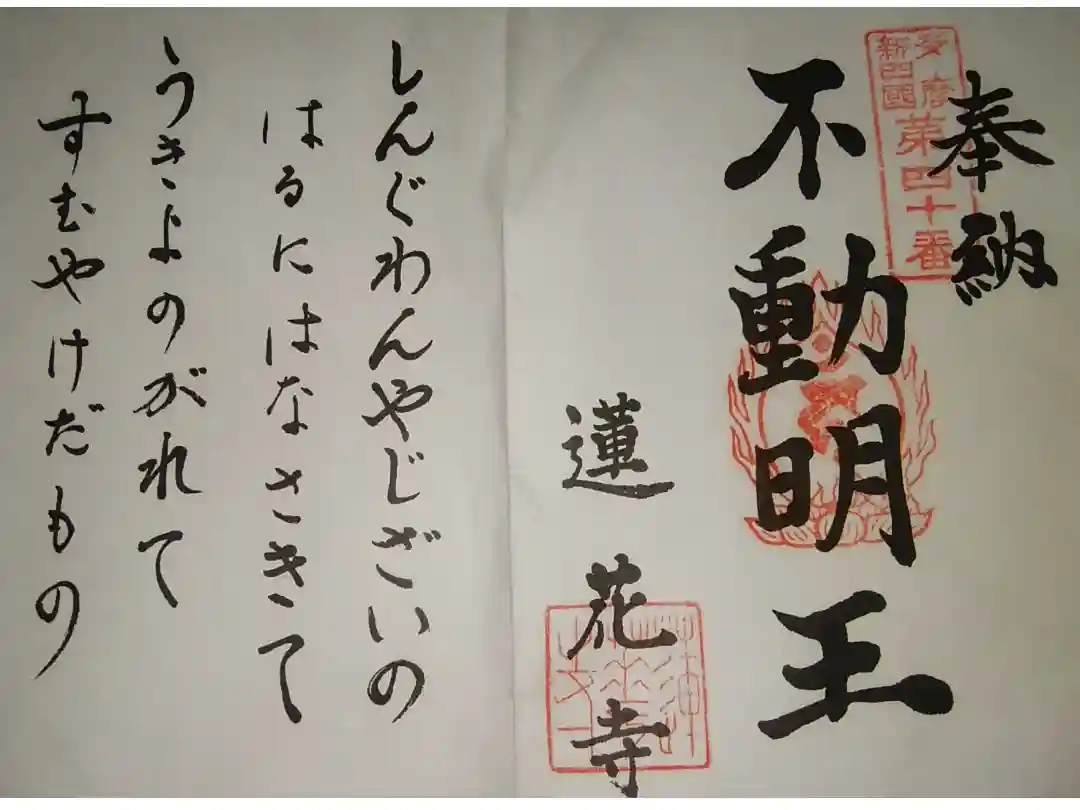 奉納
新四國
第四十番
不動明王
蓮花寺
しんぐわんやじざいの
はるにはなさきて
うきよのがれて
すむやけだもの